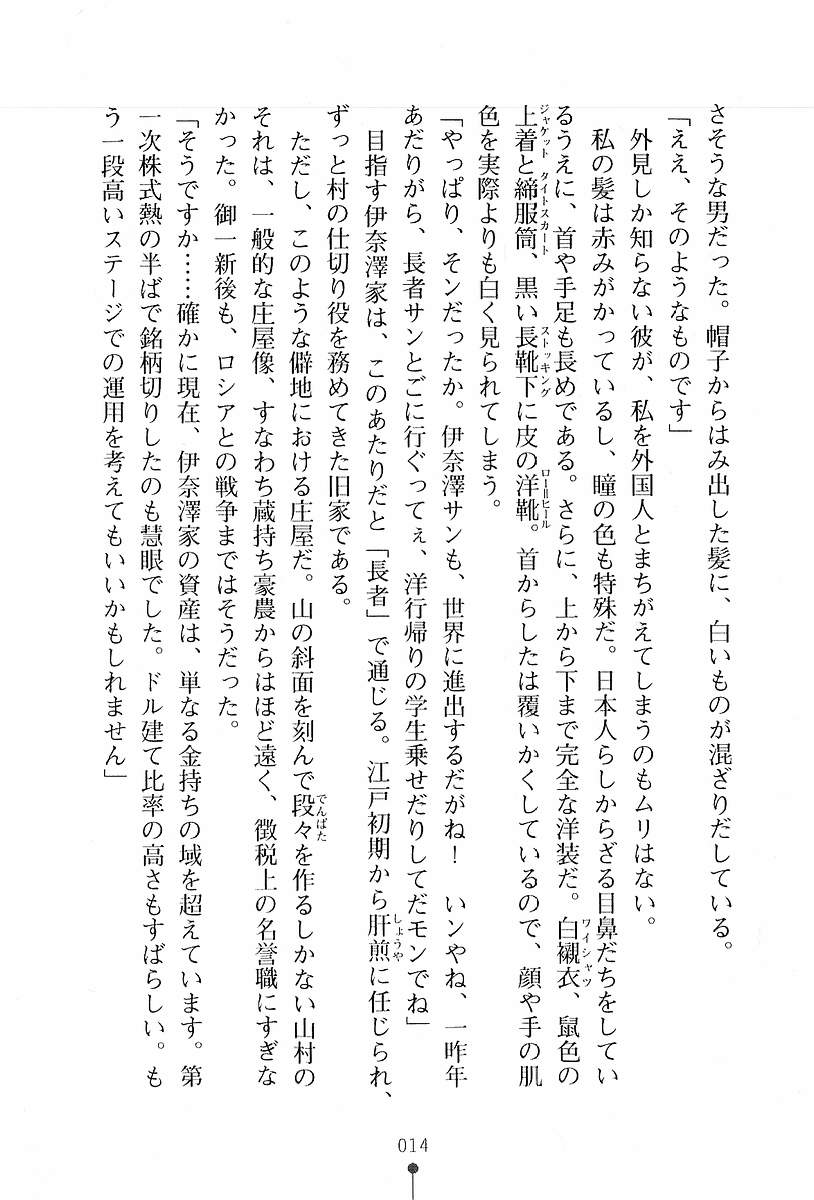 さそうな男だった。帽子からはみ出した髪に、白いものが混ざりだしている。
「ええ、そのようなものです」
外見しか知らない彼が、私を外国人とまちがえてしまうのもムリはない。
私の髪は赤みがかっているし、瞳の色も特殊だ。日本人らしからざる目鼻だちをしてい
るうえに、首や手足も長めである。さらに、上から下まで完全な洋装だ。白襯衣、鼠色の
ワイシャツ
上着と締服筒、黒い長靴下に皮の洋靴。首からしたは覆いかくしているので、顔や手の肌
ジャケット タイトスカート ストッキング ロー＝ヒール
色を実際よりも白く見られてしまう。
「やっぱり、そンだったか。伊奈澤サンも、世界に進出するだがね！　いンやね、一昨年
あだりがら、長者サンとごに行ぐってぇ、洋行帰りの学生乗せだりしてだモンでね」
目指す伊奈澤家は、このあたりだと「長者」で通じる。江戸初期から肝煎に任じられ、
しょうや
ずっと村の仕切り役を務めてきた旧家である。
ただし、このような僻地における庄屋だ。山の斜面を刻んで段々を作るしかない山村の
でんばた
それは、一般的な庄屋像、すなわち蔵持ち豪農からはほど遠く、徴税上の名誉職にすぎな
かった。御一新後も、ロシアとの戦争まではそうだった。
「そうですか……確かに現在、伊奈澤家の資産は、単なる金持ちの域を超えています。第
一次株式熱の半ばで銘柄切りしたのも慧眼でした。ドル建て比率の高さもすばらしい。も
う一段高いステージでの運用を考えてもいいかもしれません」
014